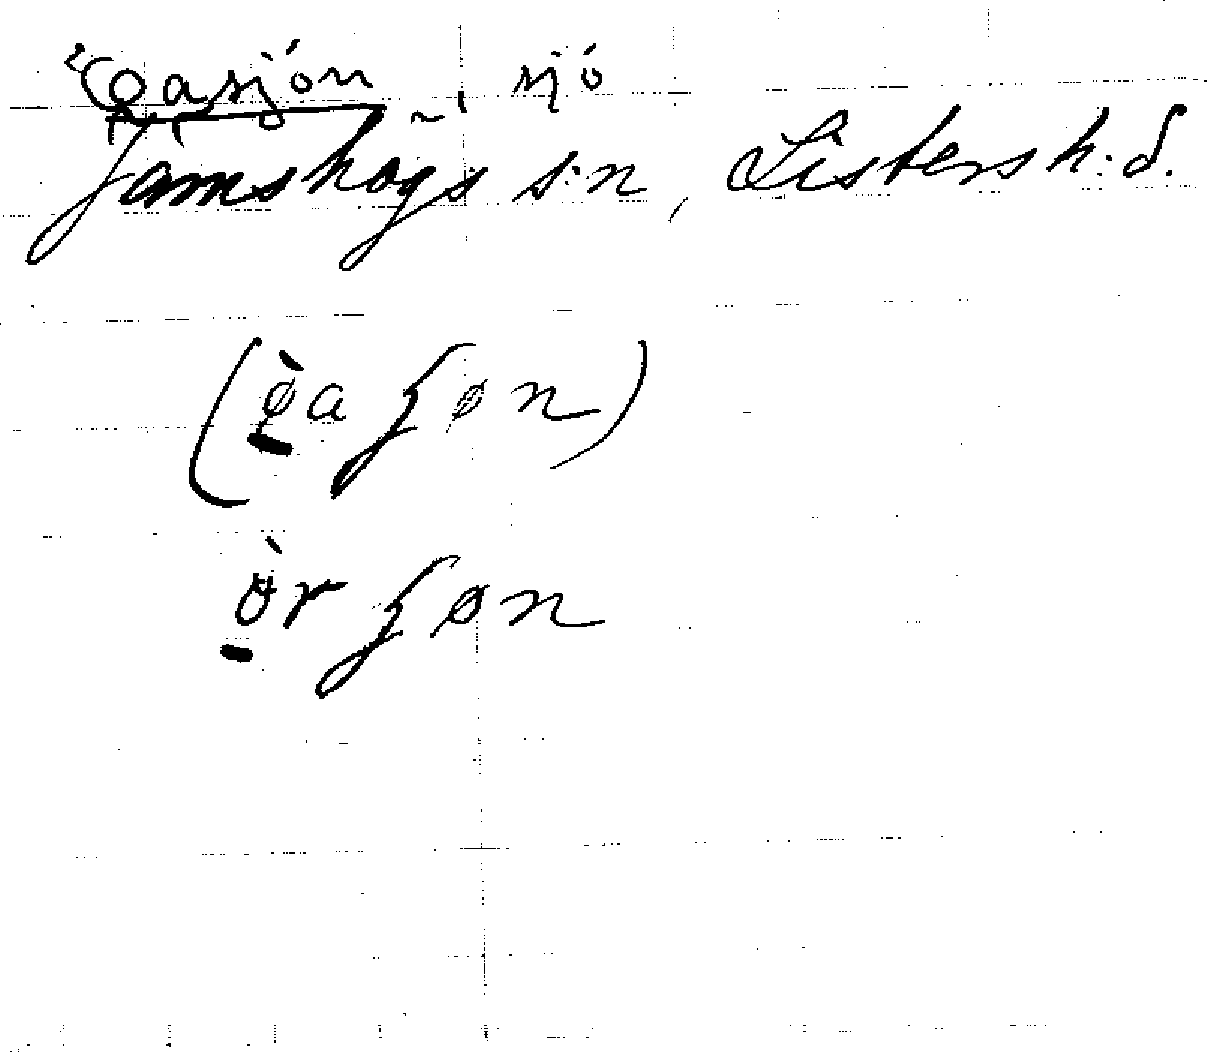 Öasjön, sjö
Jämshögs s:n, Listers h:d.
(ø̠̀a ʃøn)
ø̠̀r ʃøn